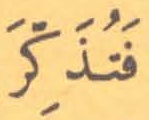 فَتُذَكِّرَ